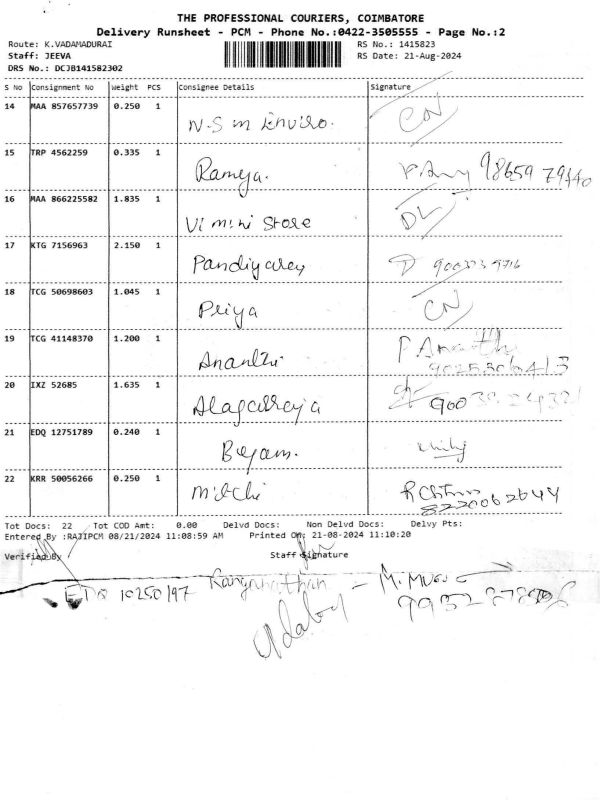 THE PROFESSIONAL COURIERS, COIMBATORE
Delivery Runsheet - PCM - Phone No.:0422-3505555 - Page No.:2
Route: K.VADAMADURAI RS No.: 1415823
Staff: JEEVA RS Date: 21-Aug-2024
DRS No.: DCJB141582302
S No Consignment No Weight PCS Consignee Details Signature
14 MAA 857657739 0.250 1 CN
N.S m Enviro.
15 TRP 4562259 0.335 1
Ramya.
16 MAA 866225582 1.835 1 DL
Vi mini Store
17 KTG 7156963 2.150 1
18 TCG 50698603 1.045 1 CN
Priya
19 TCG 41148370 1.200 1
Ananthi
20 IXZ 52685 1.635 1
21 EDQ 12751789 0.240 1
22 KRR 50056266 0.250 1
8220062644
Tot Docs: 22 Tot COD Amt: 0.00 Delvd Docs: Non Delvd Docs: Delvy Pts:
Entered By :RAJIPCM 08/21/2024 11:08:59 AM Printed On: 21-08-2024 11:10:20
Verified By Staff Signature
EDQ 10250197